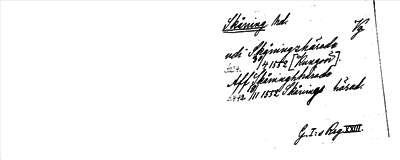 Skåning hd. Vg
udi Skåningshärade
3/4 1552 [Kungör].
Aff Skåningshärade
10/11 1552 Skånings härad.
G. I:s Reg XXIII.